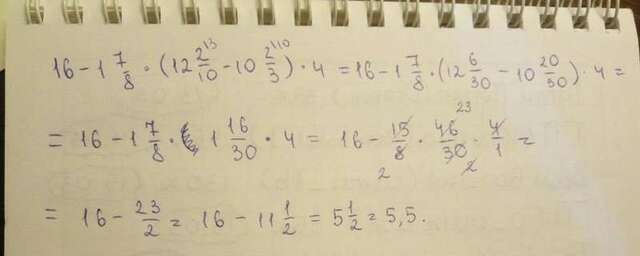 16 - 1 7/8 · (12 2/10 - 10 2/3) · 4 = 16 - 1 7/8 · (12 6/30 - 10 20/30) · 4 =
= 16 - 1 7/8 · 1 16/30 · 4 = 16 - 15/8 · 46/30 · 4/1 =
= 16 - 23/2 = 16 - 11 1/2 = 5 1/2 = 5,5.